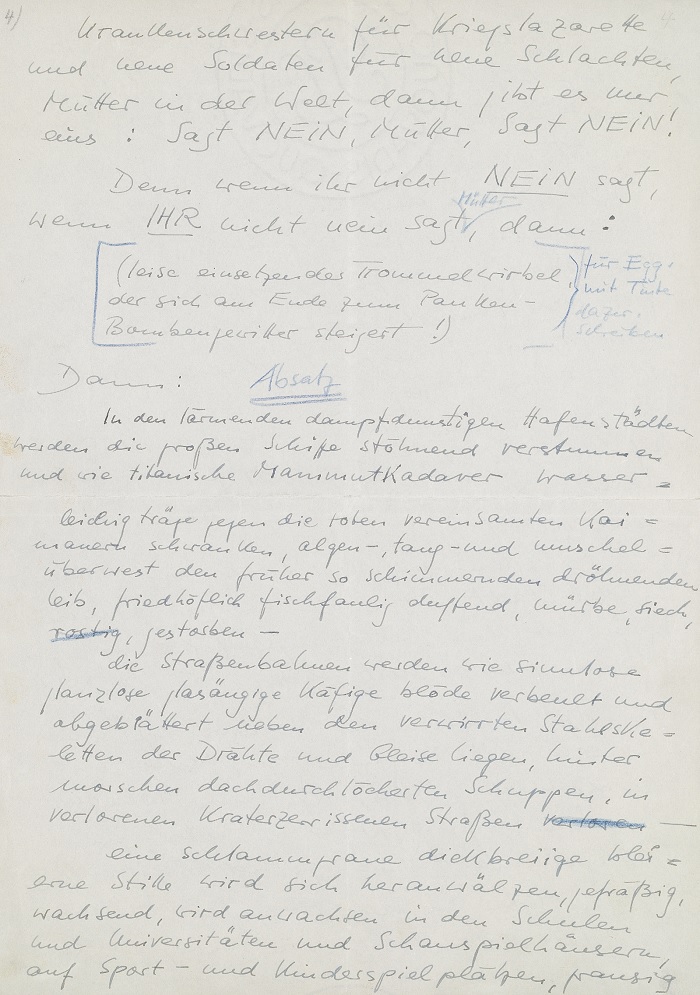 4)
Krankenschwestern für Kriegslazarette
und neue Soldaten für neue Schlachten,
Mütter in der Welt, dann gibt es nur
eins : Sagt NEIN, Mütter, sagt NEIN!
Denn wenn ihr nicht NEIN sagt,
Mütter
wenn IHR nicht nein sagt, dann:
(leise einsetzendes Trommelwirbel,
der sich am Ende zum Pauken-
Bombengewitter steigert!)
für Egg.
mit Tinte
dazu-
schreiben
Dann: Absatz
In den lärmenden dampfdunstigen Hafenstädten
werden die großen Schiffe stöhnend verstummen
und wie titanische Mammutkadaver wasser=
leichig träge gegen die toten vereinsamten Kai=
mauern schwanken, algen-, tang- und muschel=
überwest den früher so schimmernden dröhnenden
Leib, friedhöflich fischfaulig duftend, mürbe, siech,
rostig, gestorben —
die Straßenbahnen werden wie sinnlose
glanzlose glasäugige Käfige blöde verbeult und
abgeblättert neben den verwirrten Stahlske=
letten der Drähte und Gleise liegen, hinter
morschen dachdurchlöcherten Schuppen, in
verlorenen Kraterzerrissenen Straßen verloren —
eine schlammgraue dickbreiige blei=
erne Stille wird sich heranwälzen, gefräßig,
wachsend, wird anwachsen in den Schulen
und Universitäten und Schauspielhäusern,
auf Sport- und Kinderspielplätzen, grausig